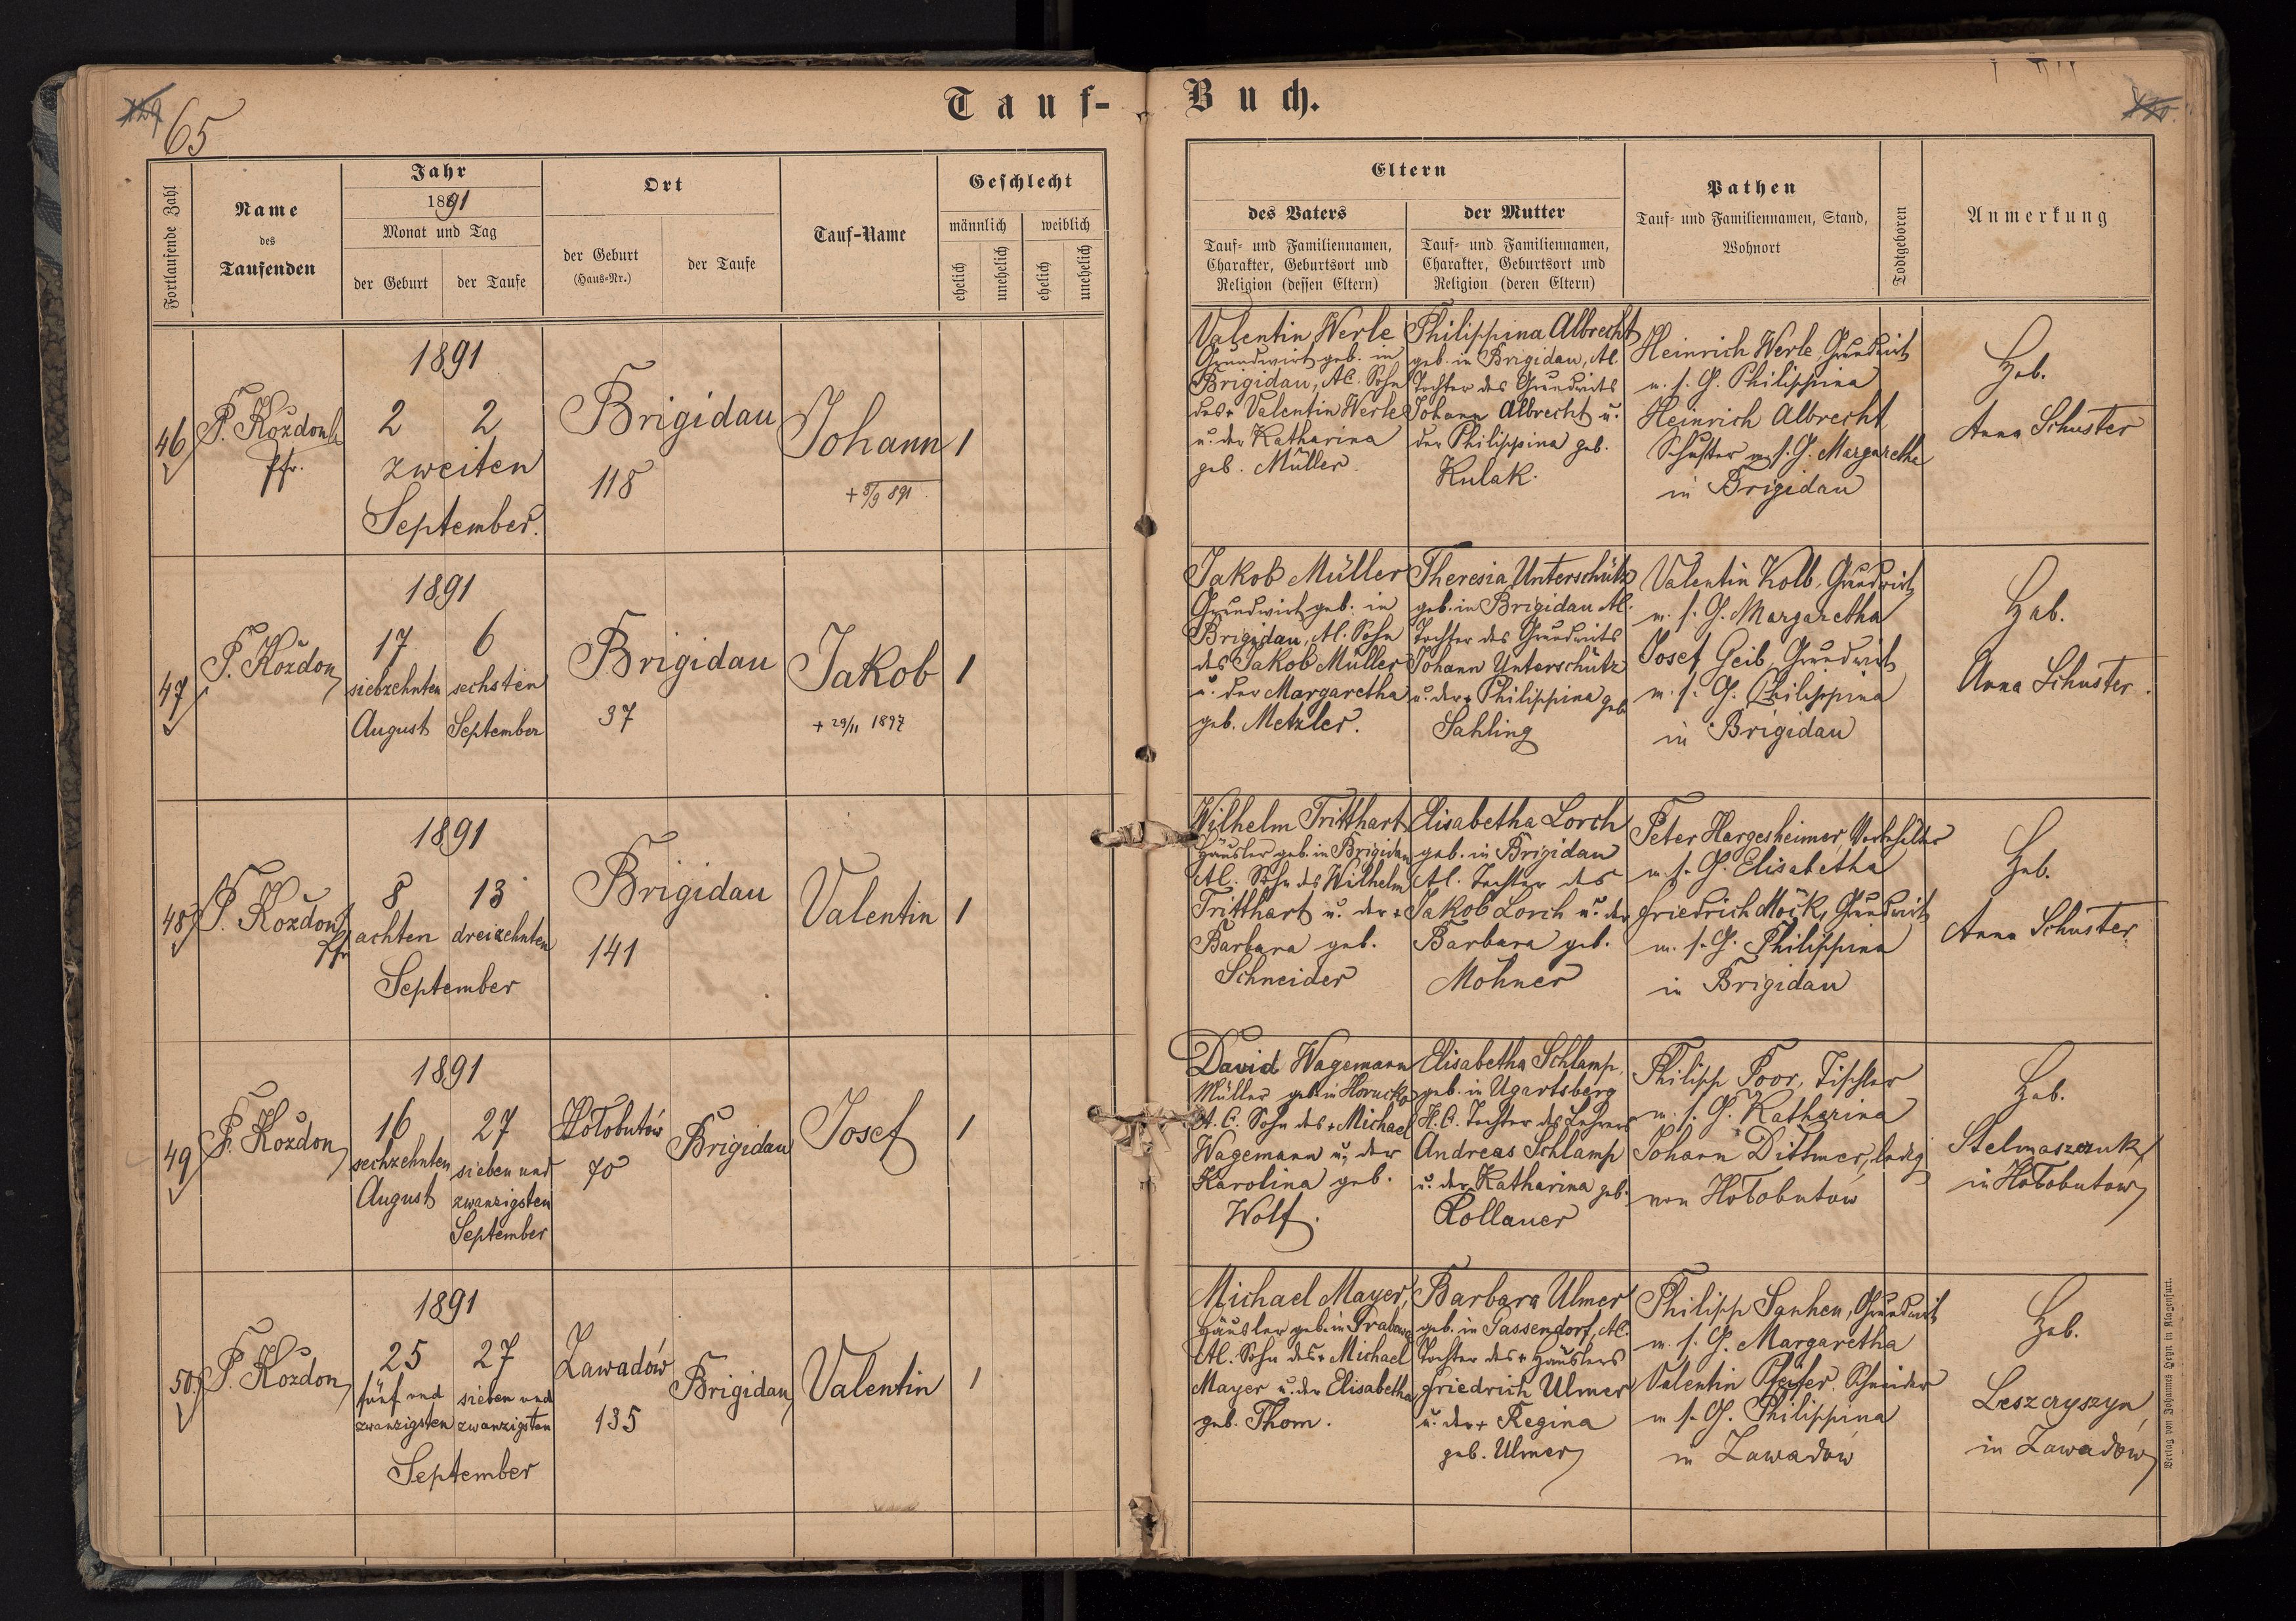 65
Tauf-
Buch.
Fortlaufende Zahl
Name
des
Taufenden
Jahr
1891
Monat und Tag
der Geburt
der Taufe
Ort
der Geburt
(Haus-Nr.)
der Taufe
Tauf-Name
Geschlecht
männlich
weiblich
ehelich
unehelich
ehelich
unehelich
Eltern
des Vaters
Tauf- und Familiennamen,
Charakter, Geburtsort und
Religion (dessen Eltern)
der Mutter
Tauf- und Familiennamen,
Charakter, Geburtsort und
Religion (deren Eltern)
Pathen
Tauf- und Familiennamen, Stand,
Wohnort
Todtgeboren
Anmerkung
46
P. Kozdon
Pfr.
1891
2 2
zweiten
September.
Brigidau
118
Johann
+ 5/9 891.
1
Valentin Werle
Grundwirt geb. in
Brigidau, AC. Sohn
des + Valentin Werle
u. der Katharina
geb. Müller.
Philippina Albrecht
geb. in Brigidau, AC.
Tochter des Grundwirts
Johann Albrecht u.
der Philippina geb.
Kulak.
Heinrich Werle, Grundwirt
m. s. G. Philippina
Heinrich Albrecht,
Schuster m. s. G. Margaretha
in Brigidau
Heb.
Anna Schuster
47
P. Kozdon
1891
17 6
siebzehnten sechsten
August September
Brigidau
37
Jakob
+ 29/11 1897
1
Jakob Müller
Grundwirt geb. in
Brigidau, AC. Sohn
des Jakob Müller
u. der Margaretha
geb. Metzler.
Theresia Unterschütz
geb. in Brigidau AC.
Tochter des Grundwirts
Johann Unterschütz
u. der + Philippina geb.
Sahling
Valentin Kolb, Grundwirt
m. s. G. Margaretha
Josef Geib, Grundwirt
m. s. G. Philippina
in Brigidau
Heb.
Anna Schuster.
48
P. Kozdon
Pfr
1891
8 13
achten dreizehnten
September
Brigidau
141
Valentin
1
Wilhelm Tritthart
Häusler geb. in Brigidau
AC. Sohn des Wilhelm
Tritthart u. der +
Barbara geb.
Schneider
Elisabetha Lorch
geb. in Brigidau
AC. Tochter des
Jakob Lorch u. der
Barbara geb.
Mohner
Peter Hargesheimer,
m. s. G. Elisabetha
Friedrich Mock, Grundwirt
m. s. G. Philippina
in Brigidau
Heb.
Anna Schuster.
49
P. Kozdon
1891
16 27
sechzehnten sieben und
August zwanzigsten
September
Hołobutów
70
Brigidau
Josef
1
David Wagemann
Müller geb. in Horucko
A. C. Sohn des + Michael
Wagemann u. der
Karolina geb.
Wolf.
Elisabetha Schlamp,
geb. in Ugartsberg
H. C. Tochter des Lehrers
Andreas Schlamp
u. der Katharina geb.
Kollauer
Philipp Poor, Tischler
m. s. G. Katharina
Johann Dittmer, ledig
von Hołobutów
Heb.
Stelmaszczuk,
in Hołobutow
50.
P. Kozdon
1891
25 27
fünf und sieben und
zwanzigsten zwanzigsten
September
Zawadów
135
Brigidau
Valentin
1
Michael Mayer,
Häusler geb. in
AC. Sohn des + Michael
Mayer u. der Elisabetha
geb. Thom.
Barbara Ulmer
geb. in Gassendorf, AC.
Tochter des + Häuslers
Friedrich Ulmer
u. der + Regina
geb. Ulmer
Philipp Manhen, Grundwirt
m. s. G. Margaretha
Valentin Pfeifer, Schneider
m. s. G. Philippina
in Zawadów
Heb.
Leszczyszyn,
in Zawadów
Verlag von Johannes Heyn in Klagenfurt.